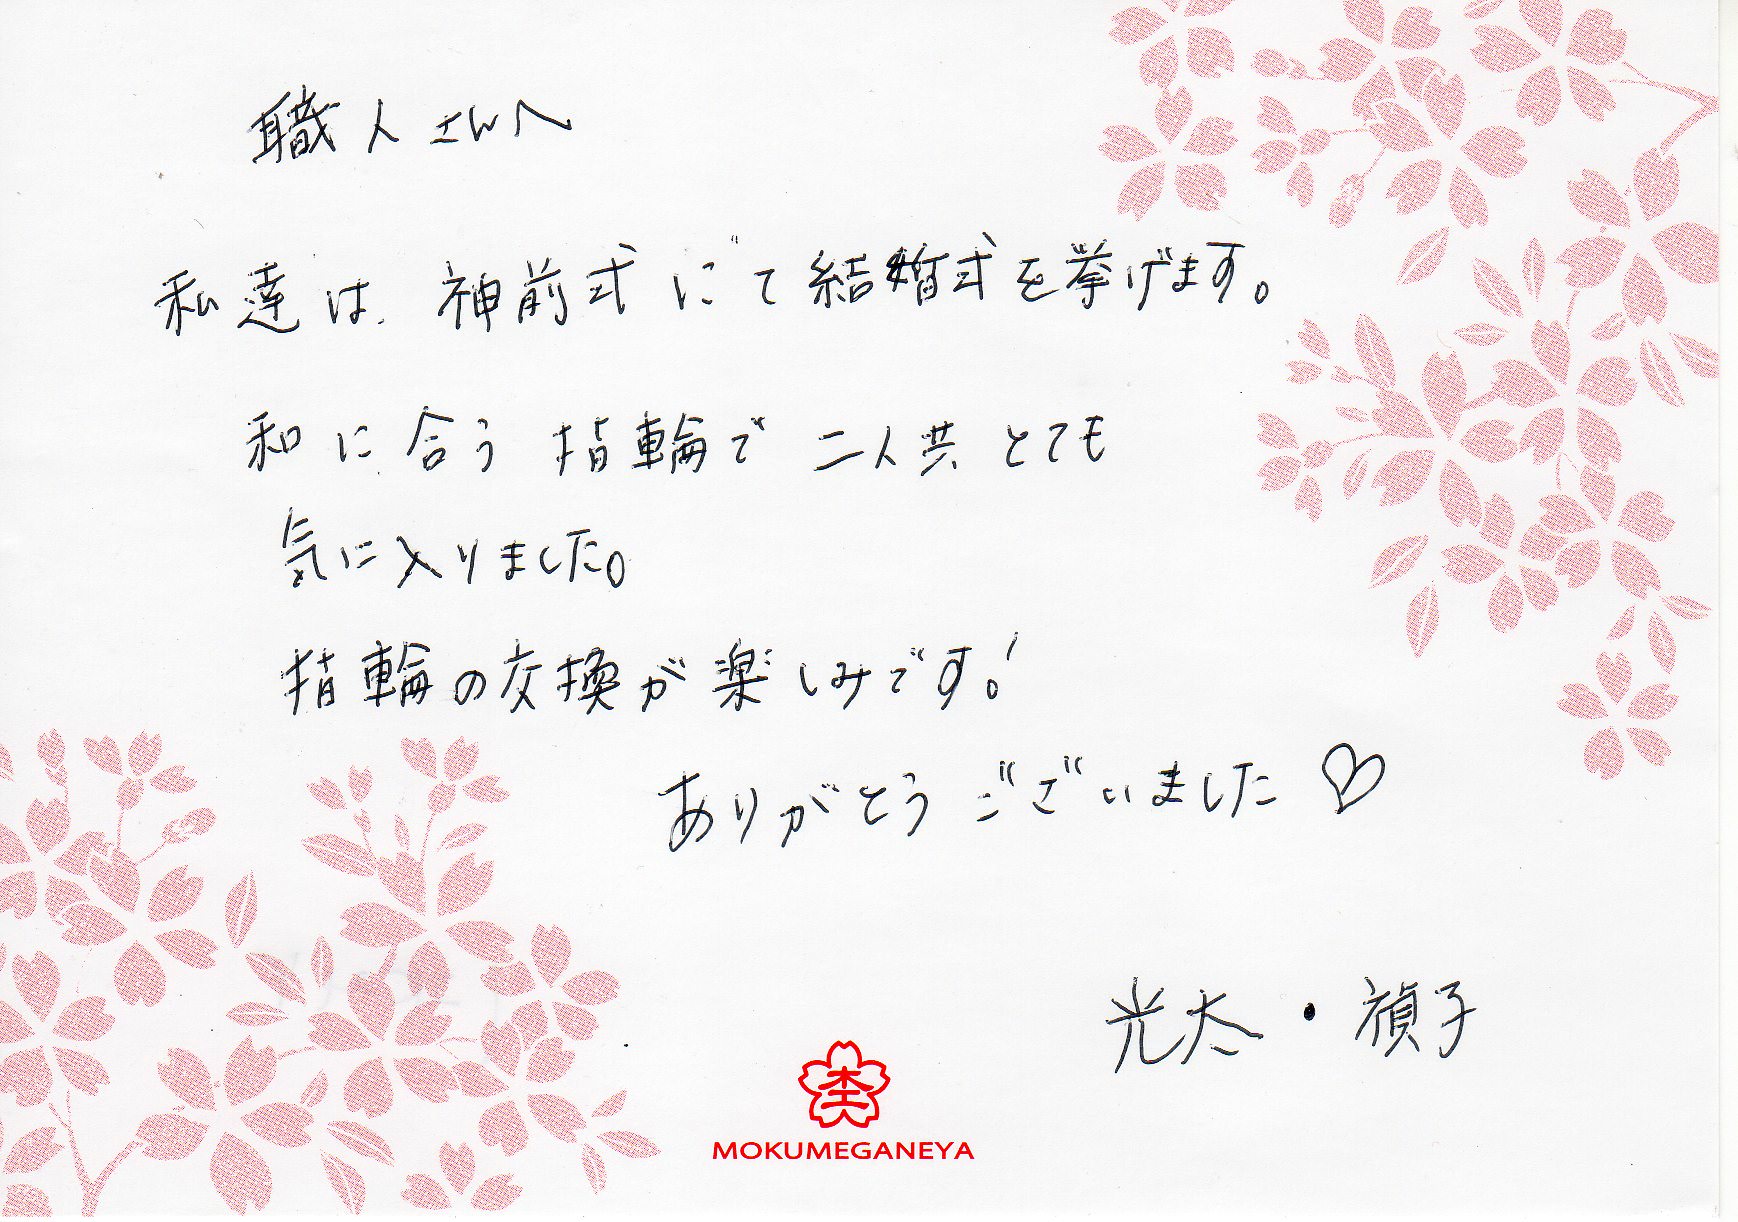 職人さんへ
私達は、神前式にて結婚式を挙げます。
和に合う指輪で二人共とても
気に入りました。
指輪の交換が楽しみです!
ありがとうございました♡
光太・禎子
MOKUMEGANEYA